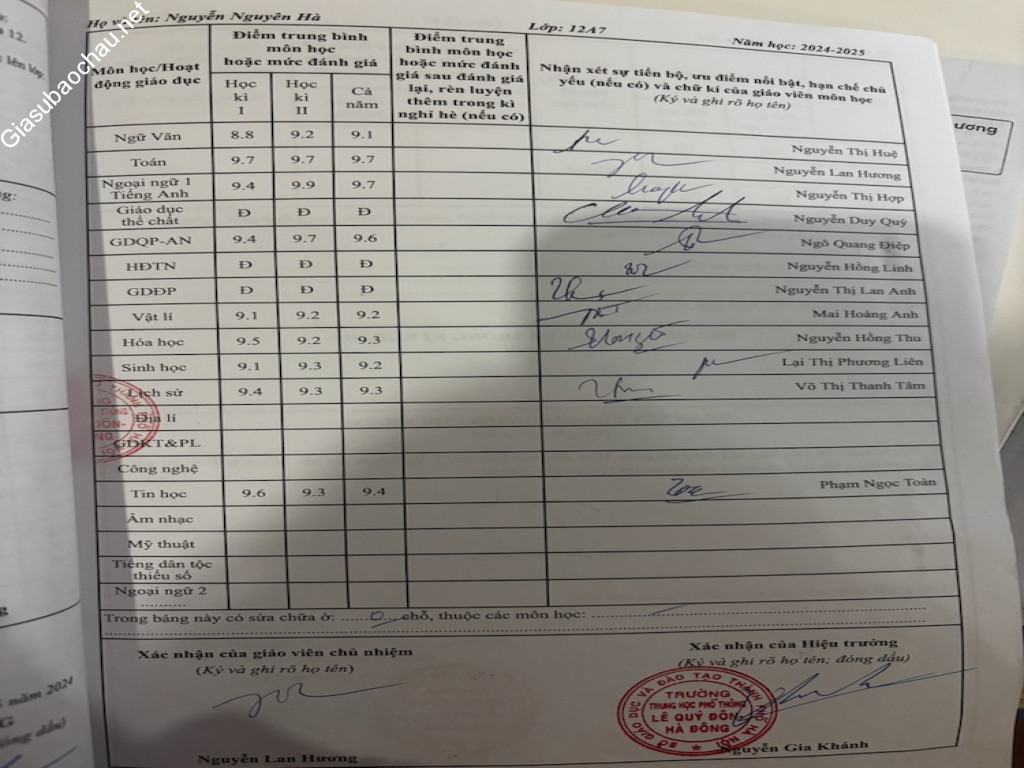 Họ và tên: Nguyễn Nguyên Hà
Lớp: 12A7
Năm học: 2024-2025
Môn học/Hoạt động giáo dục
Điểm trung bình môn học hoặc mức đánh giá
Học kì I
Học kì II
Cả năm
Điểm trung bình môn học hoặc mức đánh giá sau đánh giá lại, rèn luyện thêm trong kì nghỉ hè (nếu có)
Nhận xét sự tiến bộ, ưu điểm nổi bật, hạn chế chủ yếu (nếu có) và chữ kí của giáo viên môn học
(Ký và ghi rõ họ tên)
Ngữ Văn 8.8 9.2 9.1 Nguyễn Thị Huệ
Toán 9.7 9.7 9.7 Nguyễn Lan Hương
Ngoại ngữ 1 Tiếng Anh 9.4 9.9 9.7 Nguyễn Thị Hợp
Giáo dục thể chất Đ Đ Đ Nguyễn Duy Quý
GDQP-AN 9.4 9.7 9.6 Ngô Quang Điệp
HĐTN Đ Đ Đ Nguyễn Hồng Linh
GDĐP Đ Đ Đ Nguyễn Thị Lan Anh
Vật lí 9.1 9.2 9.2 Mai Hoàng Anh
Hóa học 9.5 9.2 9.3 Nguyễn Hồng Thu
Sinh học 9.1 9.3 9.2 Lại Thị Phương Liên
Lịch sử 9.4 9.3 9.3 Võ Thị Thanh Tâm
Địa lí
GDKT&PL
Công nghệ
Tin học 9.6 9.3 9.4 Phạm Ngọc Toản
Âm nhạc
Mỹ thuật
Tiếng dân tộc thiểu số
Ngoại ngữ 2
..........
Trong bảng này có sửa chữa ở: ......0...chỗ, thuộc các môn học:
Xác nhận của giáo viên chủ nhiệm
(Ký và ghi rõ họ tên)
Nguyễn Lan Hương
Xác nhận của Hiệu trưởng
(Ký và ghi rõ họ tên; đóng dấu)
SỞ GIÁO DỤC VÀ ĐÀO TẠO THÀNH PHỐ HÀ NỘI
TRƯỜNG
TRUNG HỌC PHỔ THÔNG
LÊ QUÝ ĐÔN
HÀ ĐÔNG
Nguyễn Gia Khánh
Giasubaochau.net